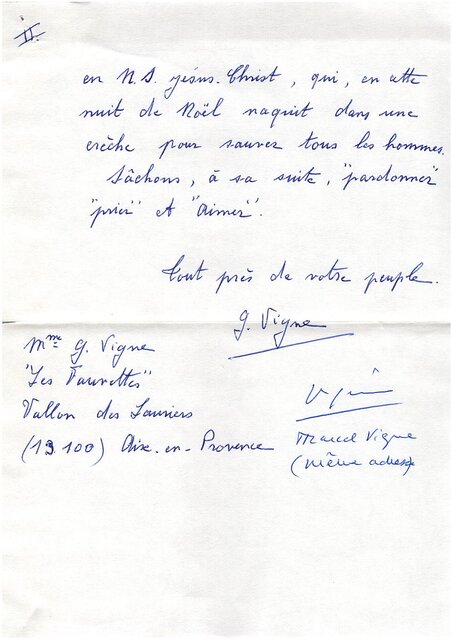 II.
en N.S. Jésus.Christ, qui, en cette
nuit de Noël naquit dans une
crèche pour sauver tous les hommes.
Sâchons, à sa suite, "pardonner"
"prier" et "aimer".
Tout près de votre peuple.
G. Vigne
Mme G. Vigne
"Les Fauvettes"
Vallon des Lauriers
(13100) Aix-en-Provence
Marcel Vigne
(même adresse)